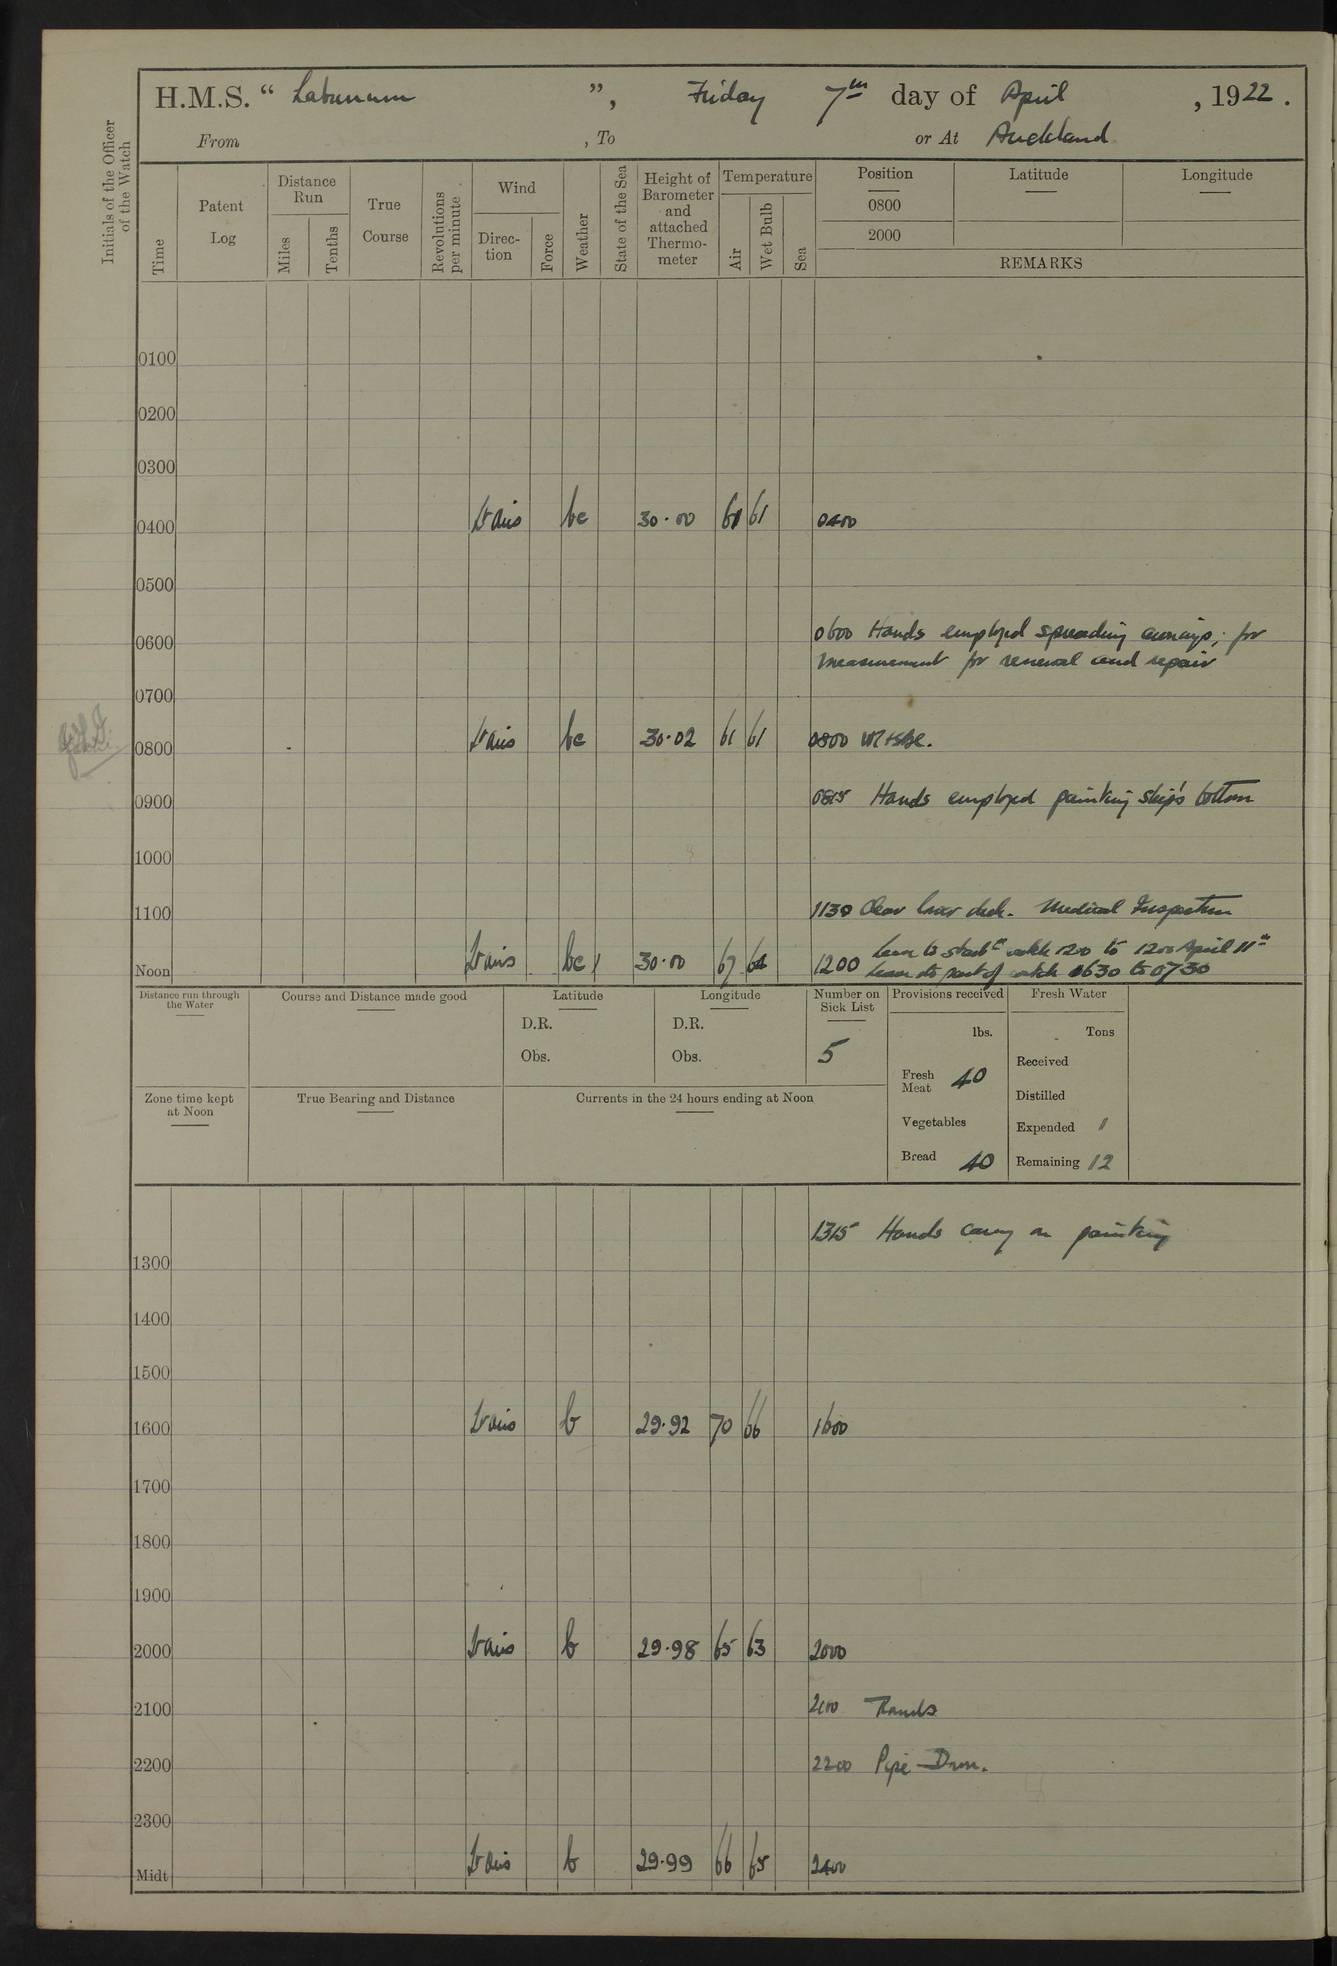 H.M.S. " Laburnum ", Friday 7th day of April , 1922.
From , To or At Auckland
Initials of the Officer of the Watch
Time
Patent Log
Distance Run
Miles
Tenths
True Course
Revolutions per minute
Wind
Direc-tion
Force
Weather
State of the Sea
Height of Barometer and attached Thermo-meter
Temperature
Air
Wet Bulb
Sea
Position Latitude Longitude
0800
2000
REMARKS
0100
0200
0300
0400 Lt airs bc 30.00 61 61 0400
0500
0600 0600 Hands employed spreading awnings, for
measurement for renewal and repair
0700
0800 Lt airs bc 30.02 61 61 0800
0815 Hands employed painting ship's bottom
0900
1000
1130 Clear lower deck. Medical Inspection
1100
Leave to starbd watch 1200 to 1200 April 11th
Noon Lt airs bc 30.00 67 64 1200 Leave to part of watch 1630 to 0730
Distance run through the Water
Course and Distance made good
Latitude
D.R.
Obs.
Longitude
D.R.
Obs.
Number on Sick List
5
Provisions received
lbs.
Fresh Meat 40
Vegetables
Bread 40
Fresh Water
Tons
Received
Distilled
Expended 1
Remaining 12
Zone time kept at Noon
True Bearing and Distance
Currents in the 24 hours ending at Noon
1315 Hands carry on painting
1300
1400
1500
1600 Lt airs b 29.92 70 66 1600
1700
1800
1900
2000 Lt airs b 29.98 65 63 2000
2100 2100 Rounds
2200 2200 Pipe Down.
2300
Midt Lt airs b 29.99 66 65 2400